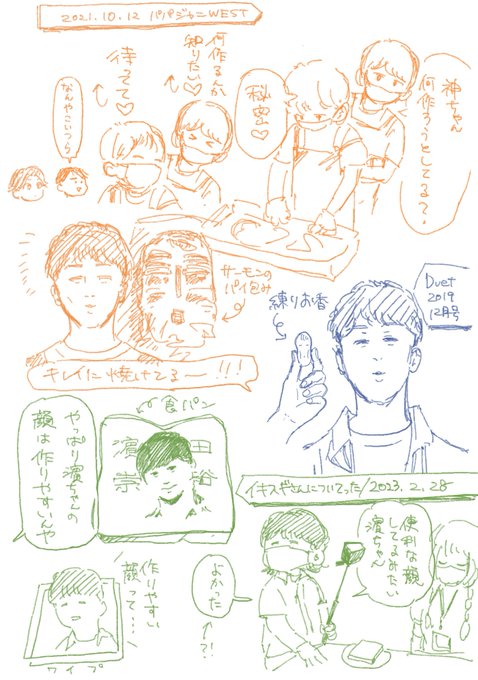 2021.10.12 パパジャニWEST
神ちゃん
何作ろうとしてる?
秘密♡
何作るんか
知りたい♡
待って♡
なんやこいつら
サーモンの
パイ包み
キレイに焼けてる〜!!!
Duet
2019
12月号
練りお香
食パン
濵田
崇裕
やっぱり濵ちゃんの
顔は作りやすいんや
イキスギさんについてった/2023.2.28
便利な顔
してるみたい
濵ちゃん
よかった
!?
作りやすい
顔って…
ワイプ